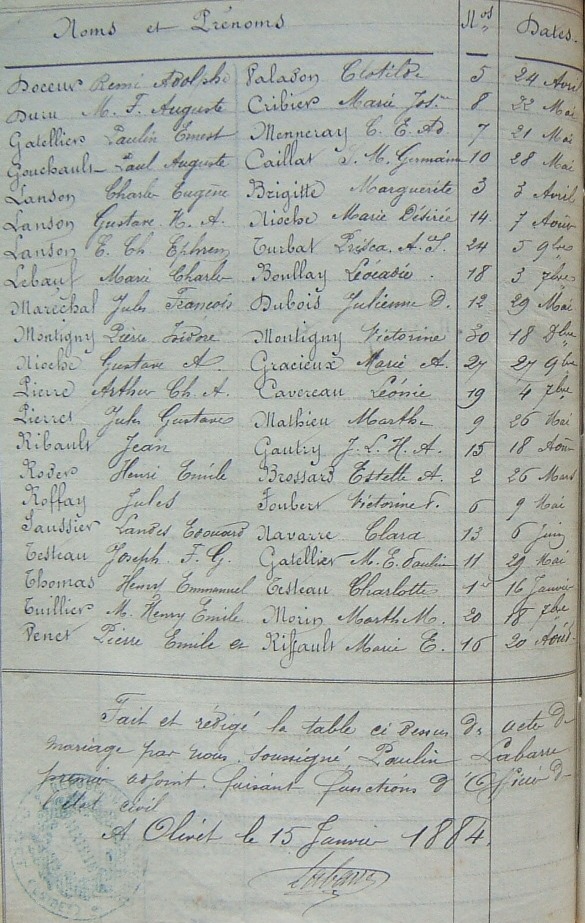 Noms et Prénoms Nos Dates
Doceur Remi Adolphe Palason Clotilde 5 24 Avril
Duru M. F. Auguste Cribier Marie Jos. 8 22 Mai
Gatellier Paulin Ernest Menneray C. E. Ad 7 21 Mai
Gouchault Paul Auguste Caillat J. M. Germain 10 28 Mai
Lanson Charle Eugène Brigitte Marguerite 3 3 Avril
Lanson Gustave H. A. Nioche Marie Désirée 14 7 Août
Lanson E. Ch Ephrem Turbat Prisca A. S. 24 5 9bre
Lebauf Marie Charle Boullay Léocadie 18 3 7bre
Maréchal Jules François Dubois Julienne D. 12 29 Mai
Montigny Pierre Isidore Montigny Victorine 30 18 Dbre
Nioche Gustave A. Gracieux Marie A. 27 27 9bre
Pierre Arthur Ch. A. Cavereau Léonie 19 4 7bre
Pierret Jules Gustave Mathieu Marthe 9 26 Mai
Ribault Jean Gautry J. L. H. A. 15 18 Août
Roder Henri Emile Brossard Estelle A. 2 26 Mars
Roffay Jules Foubert Victorine F. 6 9 Mai
Saussier Landes Edouard Navarre Clara 13 6 Juin
Testeau Joseph F. G. Gatellier M. E. Paulin 11 29 Mai
Thomas Henry Emmanuel Testeau Charlotte 1er 16 Janvier
Tuillier M. Henry Emile Morin Marthe M. 20 18 7bre
Venet Pierre Emile et Riffault Marie E. 16 20 Août
Fait et rédigé la table ci dessus de acte de
mariage par nous, soussigné Paulin Labarre
premier adjoint, faisant functions d'Officier de
l'état civil
A Olivet le 15 Janvier 1884.
Labarre